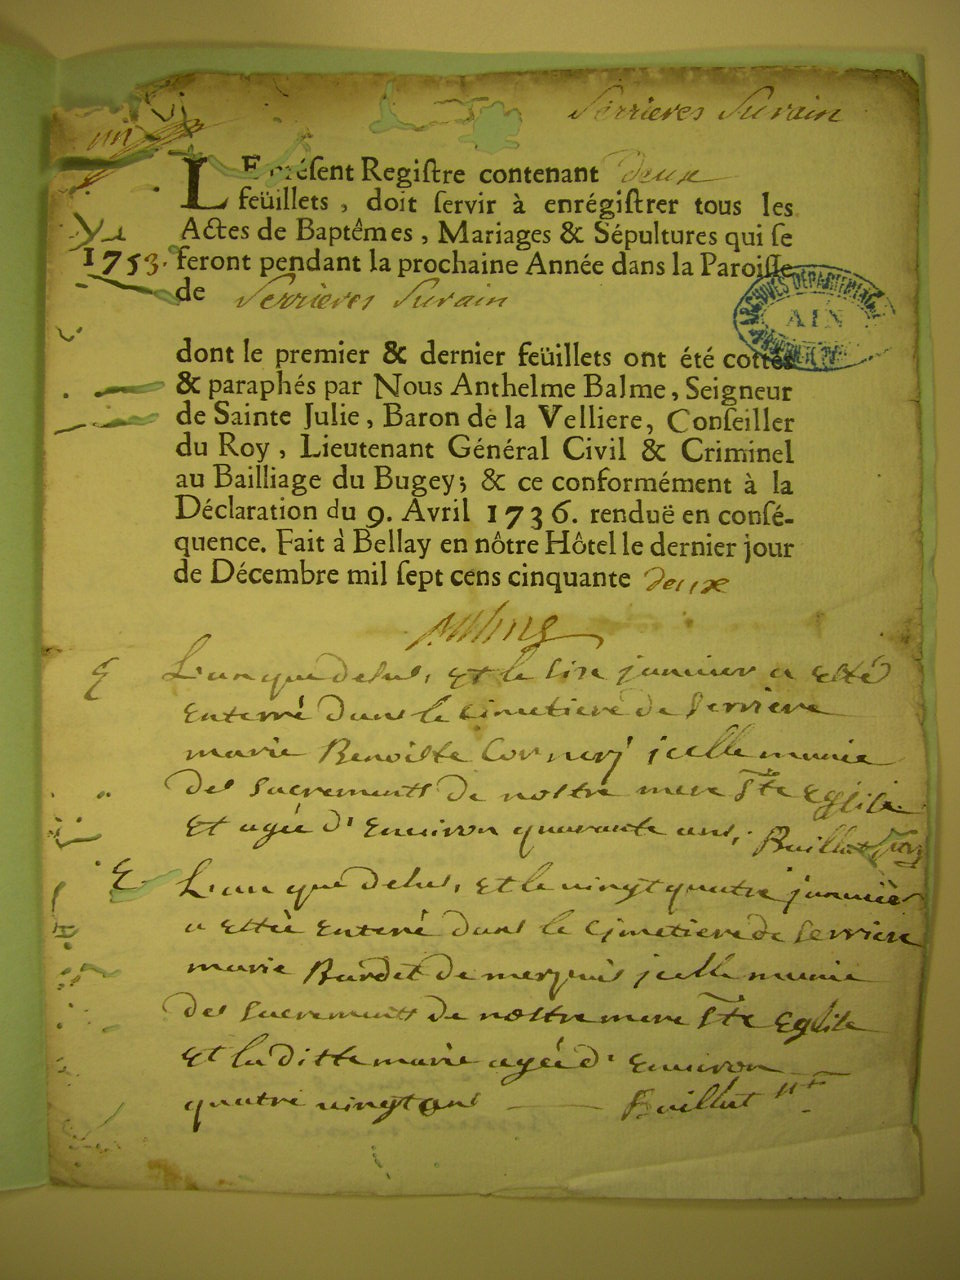 Serrieres Surain
LE présent Regiſtre contenant deux
feüillets, doit ſervir à enrégiſtrer tous les
Actes de Baptêmes, Mariages & Sépultures qui ſe
1753. feront pendant la prochaine Année dans la Paroiſſe
de Serrieres Surain
ARCHIVES DEPARTEMENTALES
AIN
dont le premier & dernier feüillets ont été cottés
& paraphés par Nous Anthelme Balme, Seigneur
de Sainte Julie, Baron de la Velliere, Conſeiller
du Roy, Lieutenant Général Civil & Criminel
au Bailliage du Bugey; & ce conformément à la
Déclaration du 9. Avril 1736. renduë en conſé-
quence. Fait à Bellay en nôtre Hôtel le dernier jour
de Décembre mil ſept cens cinquante deux
L'an que desus, et le six januier a esté
enterré dans le cimetiere de serriere
marie Benoiste jcelle munie
des sacrements de nostre mere Ste Eglise
et agée d'enuiron quarante ans, Buillet
L'an que desus, et le vingt quatre januier
a esté enteré dans le cjmetiere de serriere
marie Bardet de jcelle munie
des sacrements de nostre mere Ste Eglise
et la ditte marie agée d'enuiron
quatre uingt ans Buillet